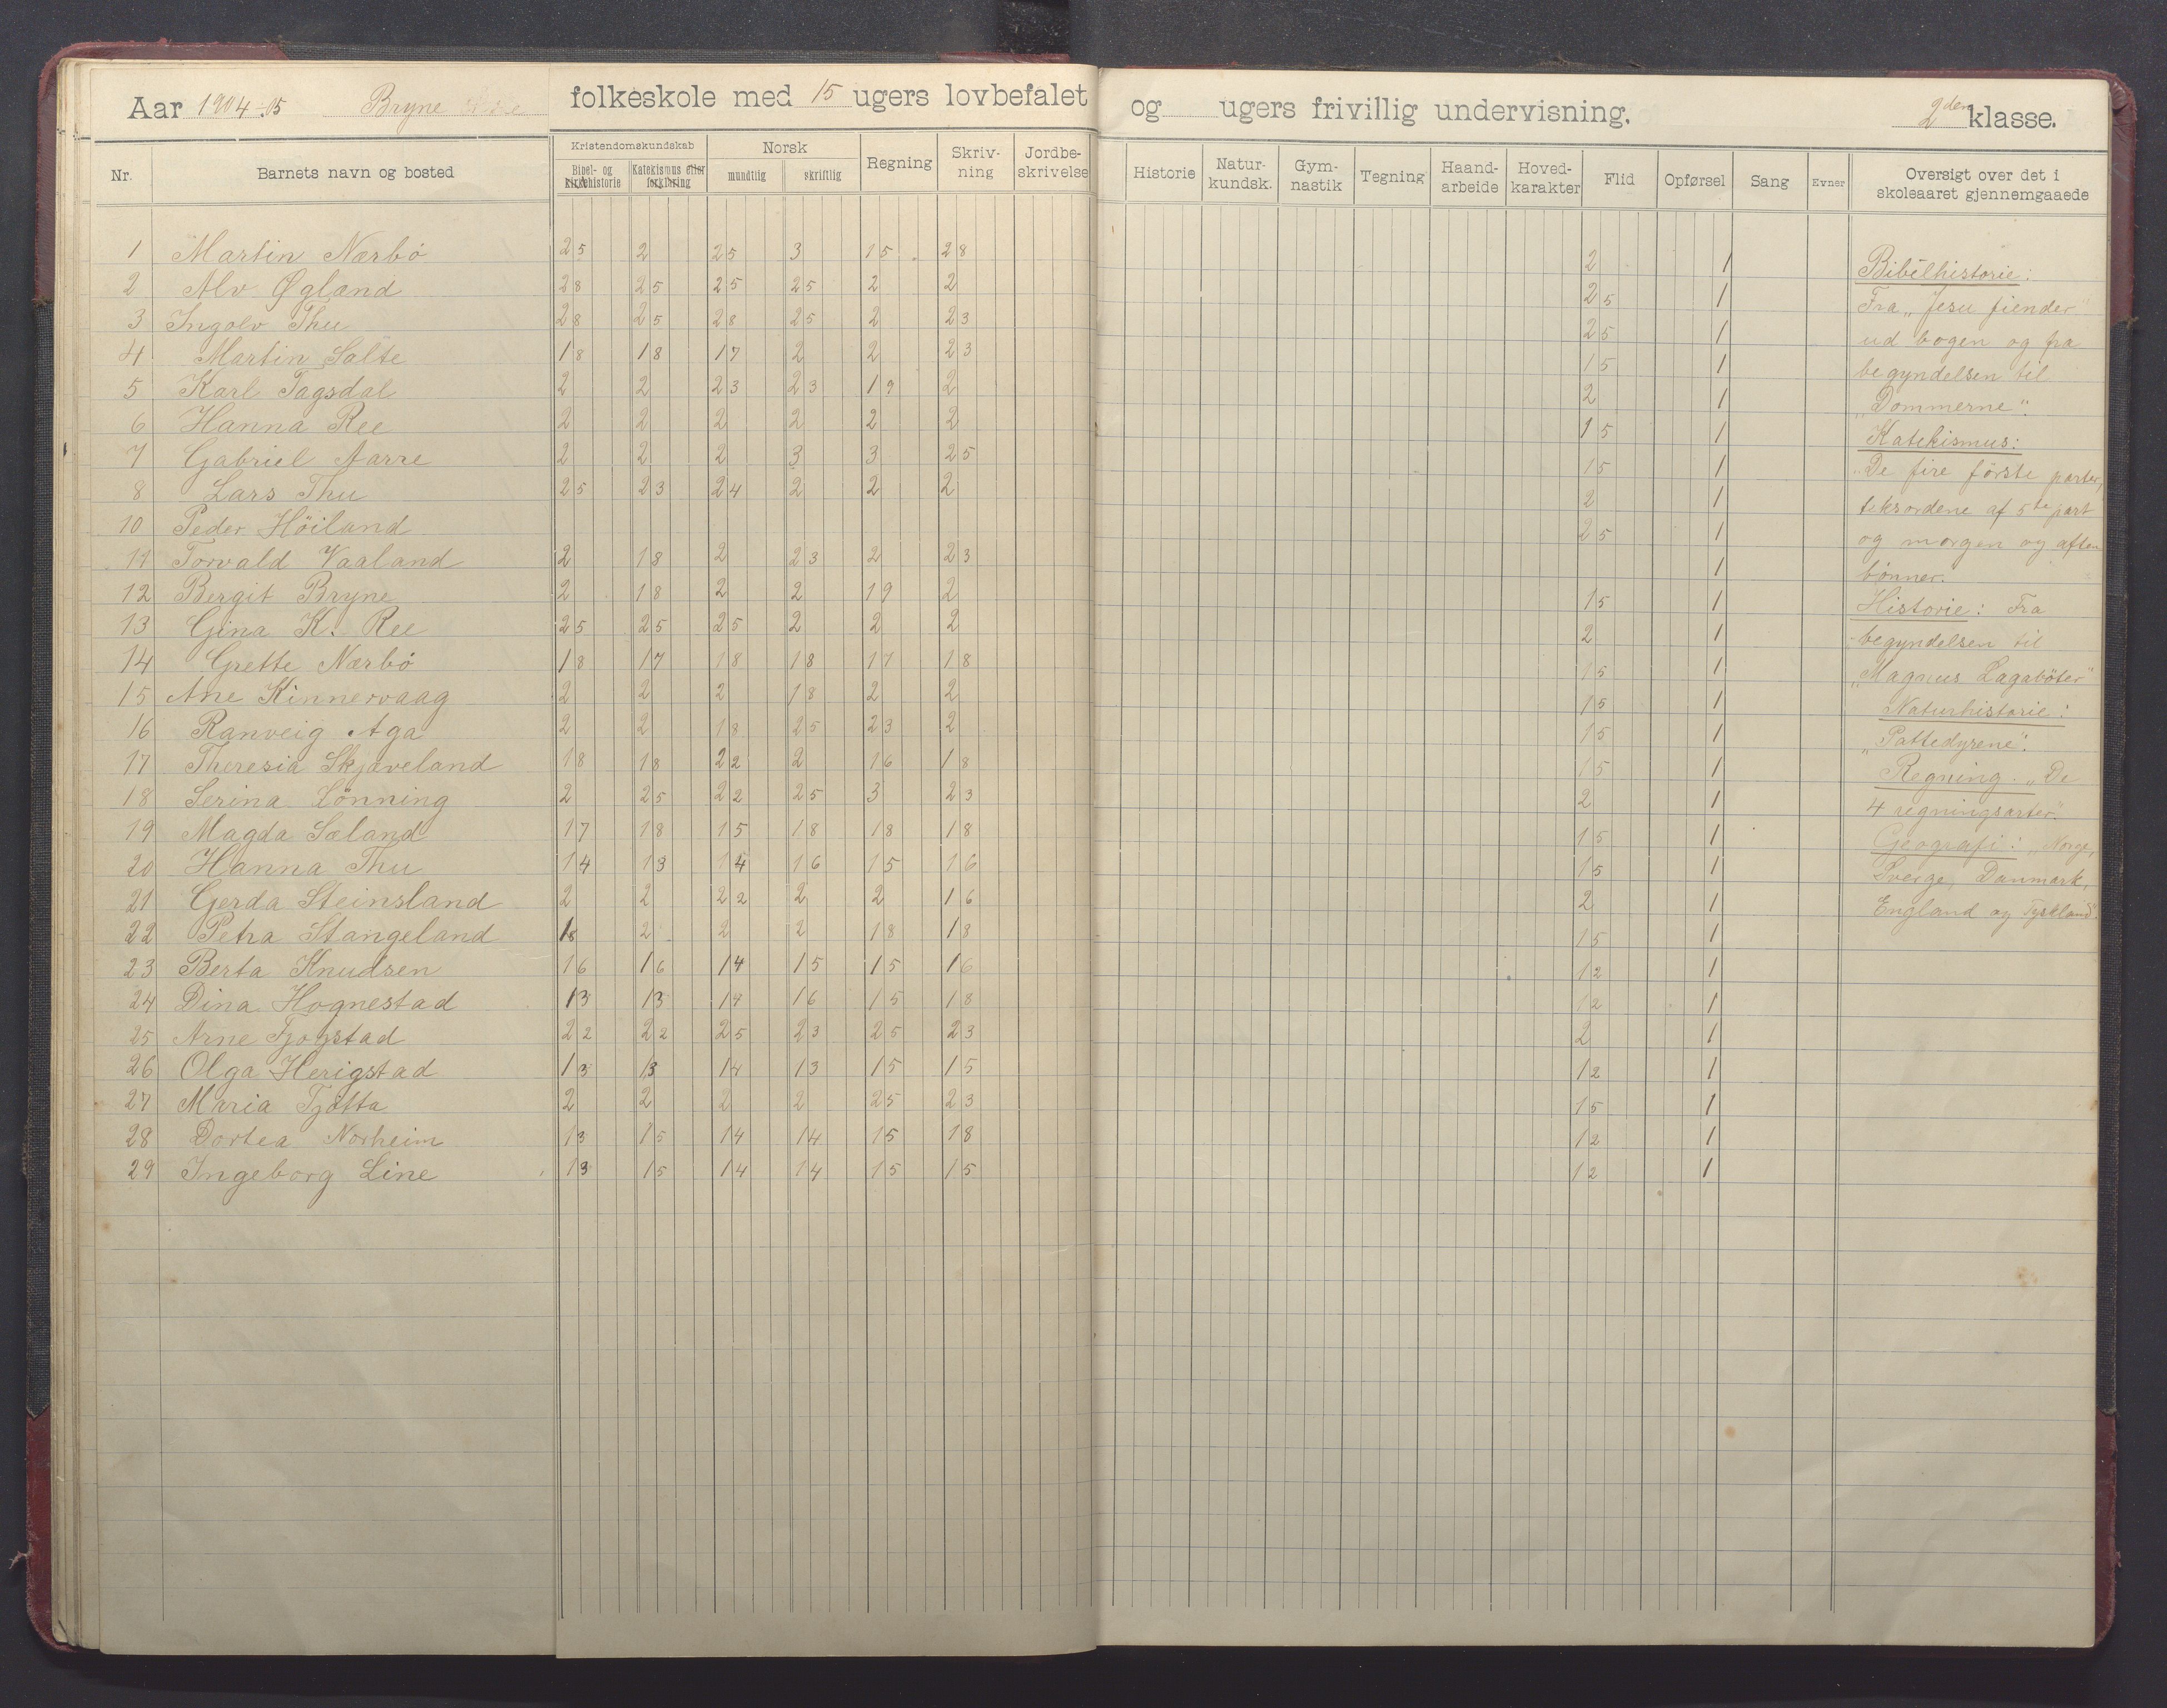 Aar 1904-05 Bryne folkeskole med 15 ugers lovbefalet og ugers frivillig undervisning. 2den klasse.
Nr. Barnets navn og bosted Kristendomskundskab Norsk Regning Skriv-ning Jordbe-skrivelse Historie Natur-kundsk. Gym-nastik Tegning Haand-arbeide Hoved-karakter Flid Opførsel Sang Evner Oversigt over det i skoleaaret gjennemgaaede
Bibel- og kirkehistorie Katekismus eller forklaring mundtlig skriftlig
1 Martin Nærbö 25 2 25 3 15 28 2 1
2 Alv Øgland 28 25 25 25 2 2 25 1
3 Ingolv Thu 28 25 28 25 2 23 25 1
4 Martin Salte 18 18 17 2 2 23 15 1
5 Karl Tagsdal 2 2 23 23 19 2 2 1
6 Hanna Ree 2 2 2 2 2 2 15 1
7 Gabriel Aarre 2 2 2 3 3 25 15 1
8 Lars Thu 25 23 24 2 2 2 2 1
10 Peder Höiland 25 1
11 Torvald Vaaland 2 18 2 23 2 23 1
12 Bergit Bryne 2 18 2 2 19 2 15 1
13 Gina K. Ree 25 25 25 2 2 2 2 1
14 Grette Nærbö 18 17 18 18 17 18 15 1
15 Ane Kinnervaag 2 2 2 18 2 2 15 1
16 Ranveig Aga 2 2 18 25 23 2 15 1
17 Theresia Skjæveland 18 18 22 2 16 18 15 1
18 Serina Lönning 2 25 22 25 3 23 2 1
19 Magda Sæland 17 18 15 18 18 18 15 1
20 Hanna Thu 14 13 14 16 15 16 15 1
21 Gerda Steinsland 2 2 22 2 2 16 2 1
22 Petra Stangeland 18 2 2 2 18 18 15 1
23 Berta Knudsen 16 16 14 15 15 16 12 1
24 Dina Hognestad 13 13 14 16 15 18 12 1
25 Arne Tjogstad 22 22 25 23 25 23 2 1
26 Olga Herigstad 13 13 14 13 15 15 12 1
27 Maria Tjötta 2 2 2 2 25 23 15 1
28 Dortea Norheim 13 15 14 14 15 18 12 1
29 Ingeborg Line 13 15 14 14 15 15 12 1
Bibelhistorie:
Fra „Jesu fiender"
ud bogen og fra
begyndelsen til
„Dommerne".
Katekismus:
„De fire förste parter,
teksordene af 5te part
og morgen og aften
bönner.
Historie: Fra
begyndelsen til
„Magnus Lagaböter"
Naturhistorie:
„Pattedyrene".
Regning. „De
4 regningsarter".
Geografi: „Norge,
Sverge, Danmark,
England og Tyskland".